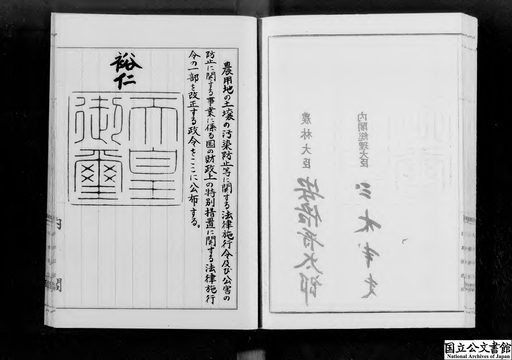 内閣総理大臣
三木武夫
農林大臣
安倍晋太郎
農用地の土壌の汚染防止等に関する法律施行令及び公害の
防止に関する事業に係る国の財政上の特別措置に関する法律施行
令の一部を改正する政令をここに公布する。
裕仁
天皇
御璽
内閣
国立公文書館
National Archives of Japan